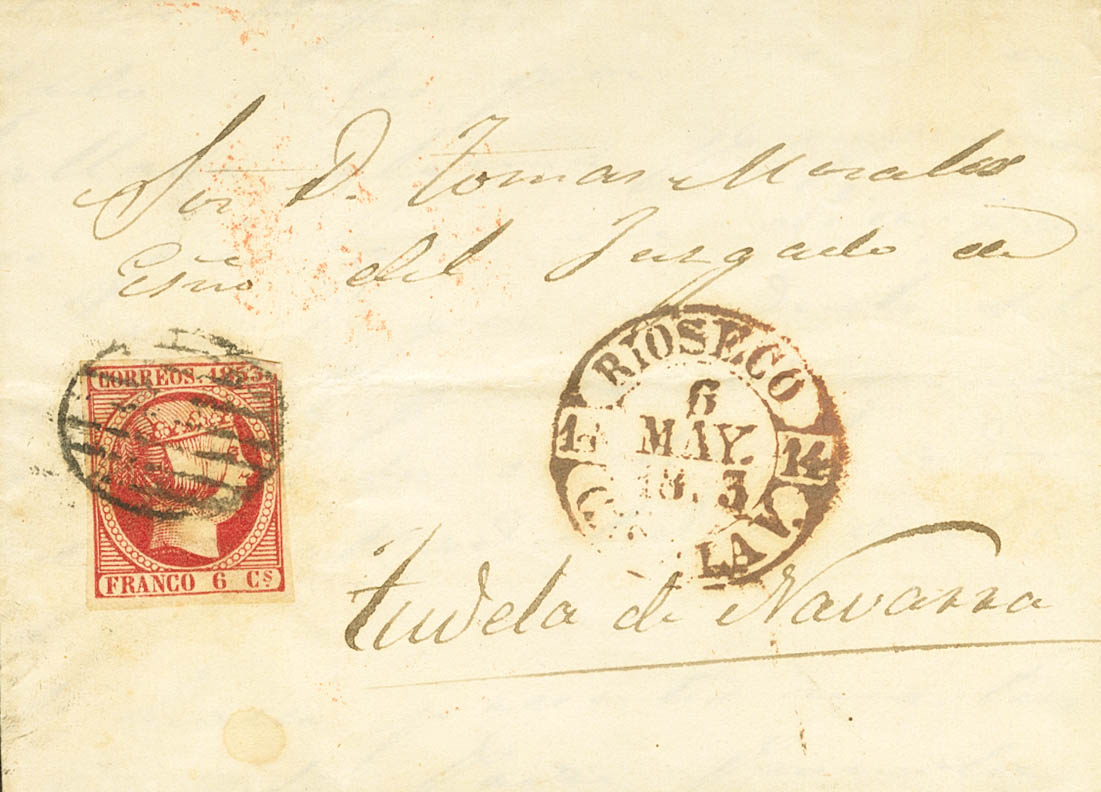 Sor. D. Tomas Morales
Esño del Juzgado de
CORREOS. 1853.
FRANCO 6 Cs
RIOSECO
6
MAY.
14
Tudela de Navarra